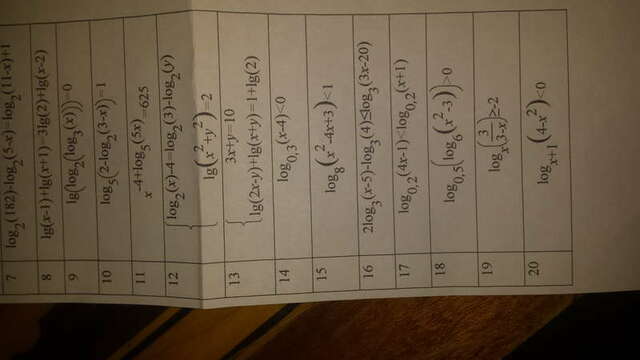 7 log₂(182)-log₂(5-x)=log₂(11-x)+1
8 lg(x-1)+lg(x+1)=3lg(2)+lg(x-2)
9 lg(log₂(log₃(x)))=0
10 log₅(2-log₂(3-x))=1
11 x^(-4+log₅(5x))=625
12 {log₂(x)-4=log₂(3)-log₂(y)
lg(x²+y²)=2
13 {3x+y=10
lg(2x-y)+lg(x+y)=1+lg(2)
14 log₀,₃(x-4)<0
15 log₈(x²-4x+3)<1
16 2log₃(x-5)-log₃(4)≤log₃(3x-20)
17 log₀,₂(4x-1)<log₀,₂(x+1)
18 log₀,₅(log₆(x²-3))>0
19 logₓ(3/(3-x))≥-2
20 logₓ₊₁(4-x²)<0